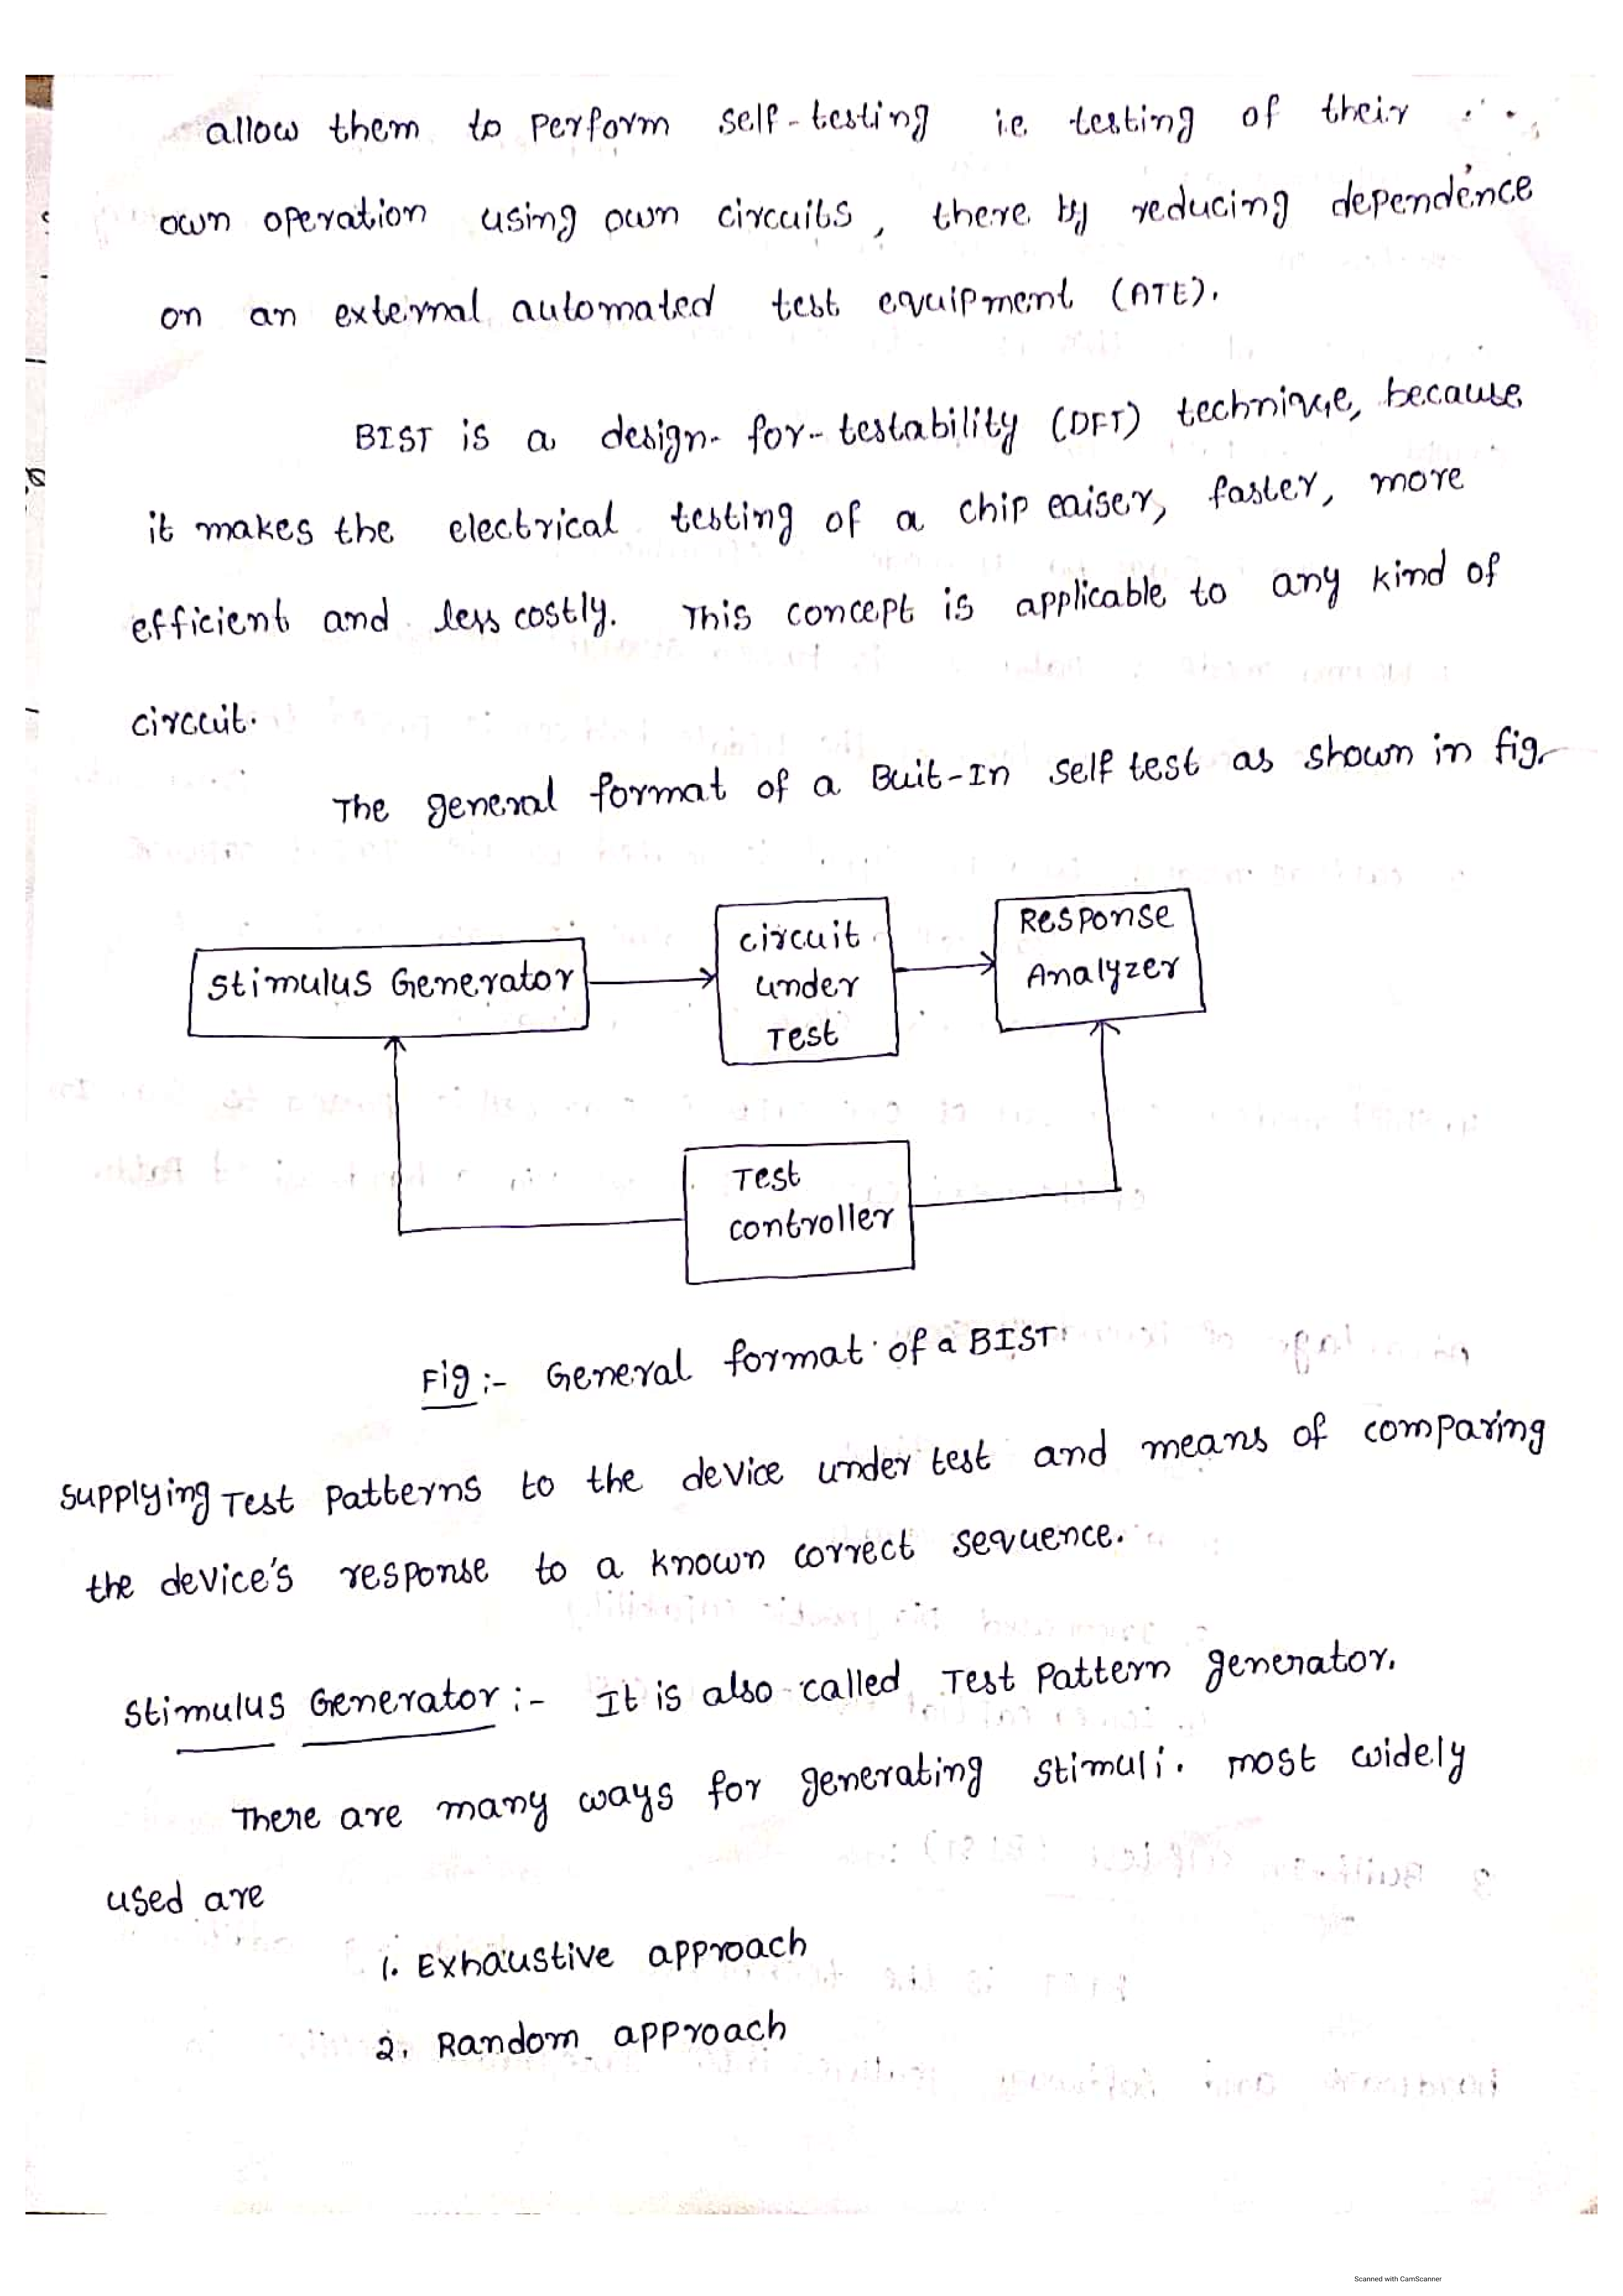 allow them to perform self-testing i.e testing of their
own operation using own circuits, there by reducing dependence
on an external automated test equipment (ATE).
BIST is a design-for-testability (DFT) technique, because
it makes the electrical testing of a chip eaiser, faster, more
efficient and less costly. This concept is applicable to any kind of
circuit.
The general format of a Buit-In self test as shown in fig.
Stimulus Generator
circuit
under
Test
Response
Analyzer
Test
controller
Fig :- General format of a BIST
supplying Test Patterns to the device under test and means of comparing
the device's response to a known correct sequence.
Stimulus Generator :- It is also called Test Pattern generator.
There are many ways for generating stimuli. most widely
used are
1. Exhaustive approach
2. Random approach
Scanned with CamScanner